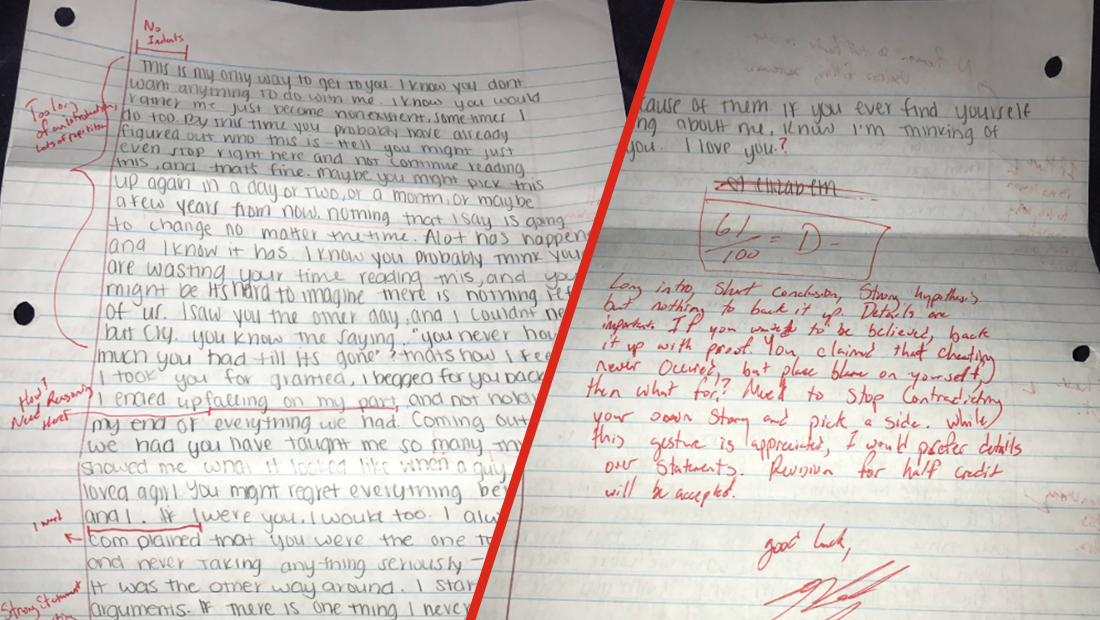 No
Indents
This is my only way to get to you. I know you don't
want anything to do with me. I know you would
rather me just become nonexistent, sometimes I
do too. By this time you probably have already
figured out who this is - Hell you might just
even stop right here and not continue reading
this, and thats fine. maybe you might pick this
up again in a day or two, or a month, or maybe
a few years from now. nothing that I say is going
to change no matter the time. Alot has happen
and I know it has. I know you probably think your
are wasting your time reading this, and you
might be. Its hard to imagine there is nothing
of us. I saw you the other day, and I couldnt
but cry. you know the saying, "you never
much you had till its gone"? thats how I feel
I took you for granted, I begged for you back
I ended up falling on my part, and not
my end of everything we had. Coming out
we had you have taught me so many
showed me what it looked like when a guy
loved a girl. You might regret everything
and I. If I were you, I would too. I
complained that you were the one
and never taking anything seriously -
it was the other way around. I
arguments. If there is one thing I never
Too long
of an introduction,
Lots of repetition
How?
Need Reasoning
Here
Strong Statement
cause of them if you ever find yourself
ng about me, know I'm thinking of
you. I love you.?
61
100 = D-
Long intro, Short Conclusion, Strong hypothesis
but nothing to back it up. Details are
important. If you wanted to be believed, back
it up with proof. You claimed that cheating
never occured, but place blame on yourself,
then what for!? Need to stop Contradicting
your own story and pick a side. While
this gesture is appreciated, I would prefer details
over statements. Revision for half credit
will be accepted.
good luck,